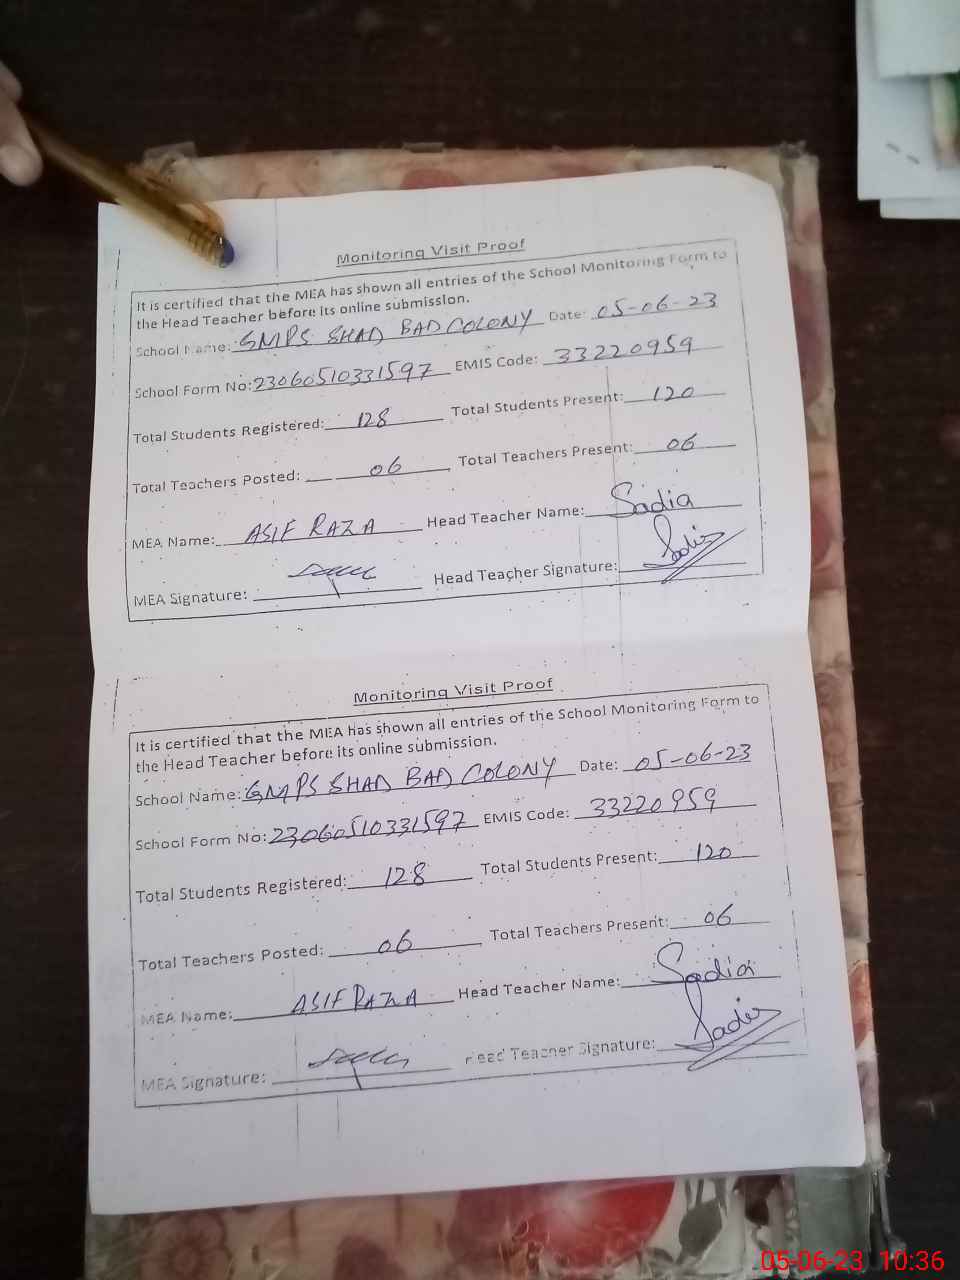 Monitoring Visit Proof
It is certified that the MEA has shown all entries of the School Monitoring Form to
the Head Teacher before its online submission.
School Name: GMPS SHAD BAD COLONY Date: 05-06-23
School Form No: 23060510331597 EMIS Code: 33220959
Total Students Registered: 128 Total Students Present: 120
Total Teachers Posted: 06 Total Teachers Present: 06
MEA Name: ASIF RAZA Head Teacher Name: Sadia
MEA Signature: Head Teacher Signature: Sadia
Monitoring Visit Proof
It is certified that the MEA has shown all entries of the School Monitoring Form to
the Head Teacher before its online submission.
School Name: GMPS SHAD BAD COLONY Date: 05-06-23
School Form No: 23060510331597 EMIS Code: 33220959
Total Students Registered: 128 Total Students Present: 120
Total Teachers Posted: 06 Total Teachers Present: 06
MEA Name: ASIF RAZA Head Teacher Name: Sadia
MEA Signature: Head Teacher Signature: Sadia
05-06-23 10:36